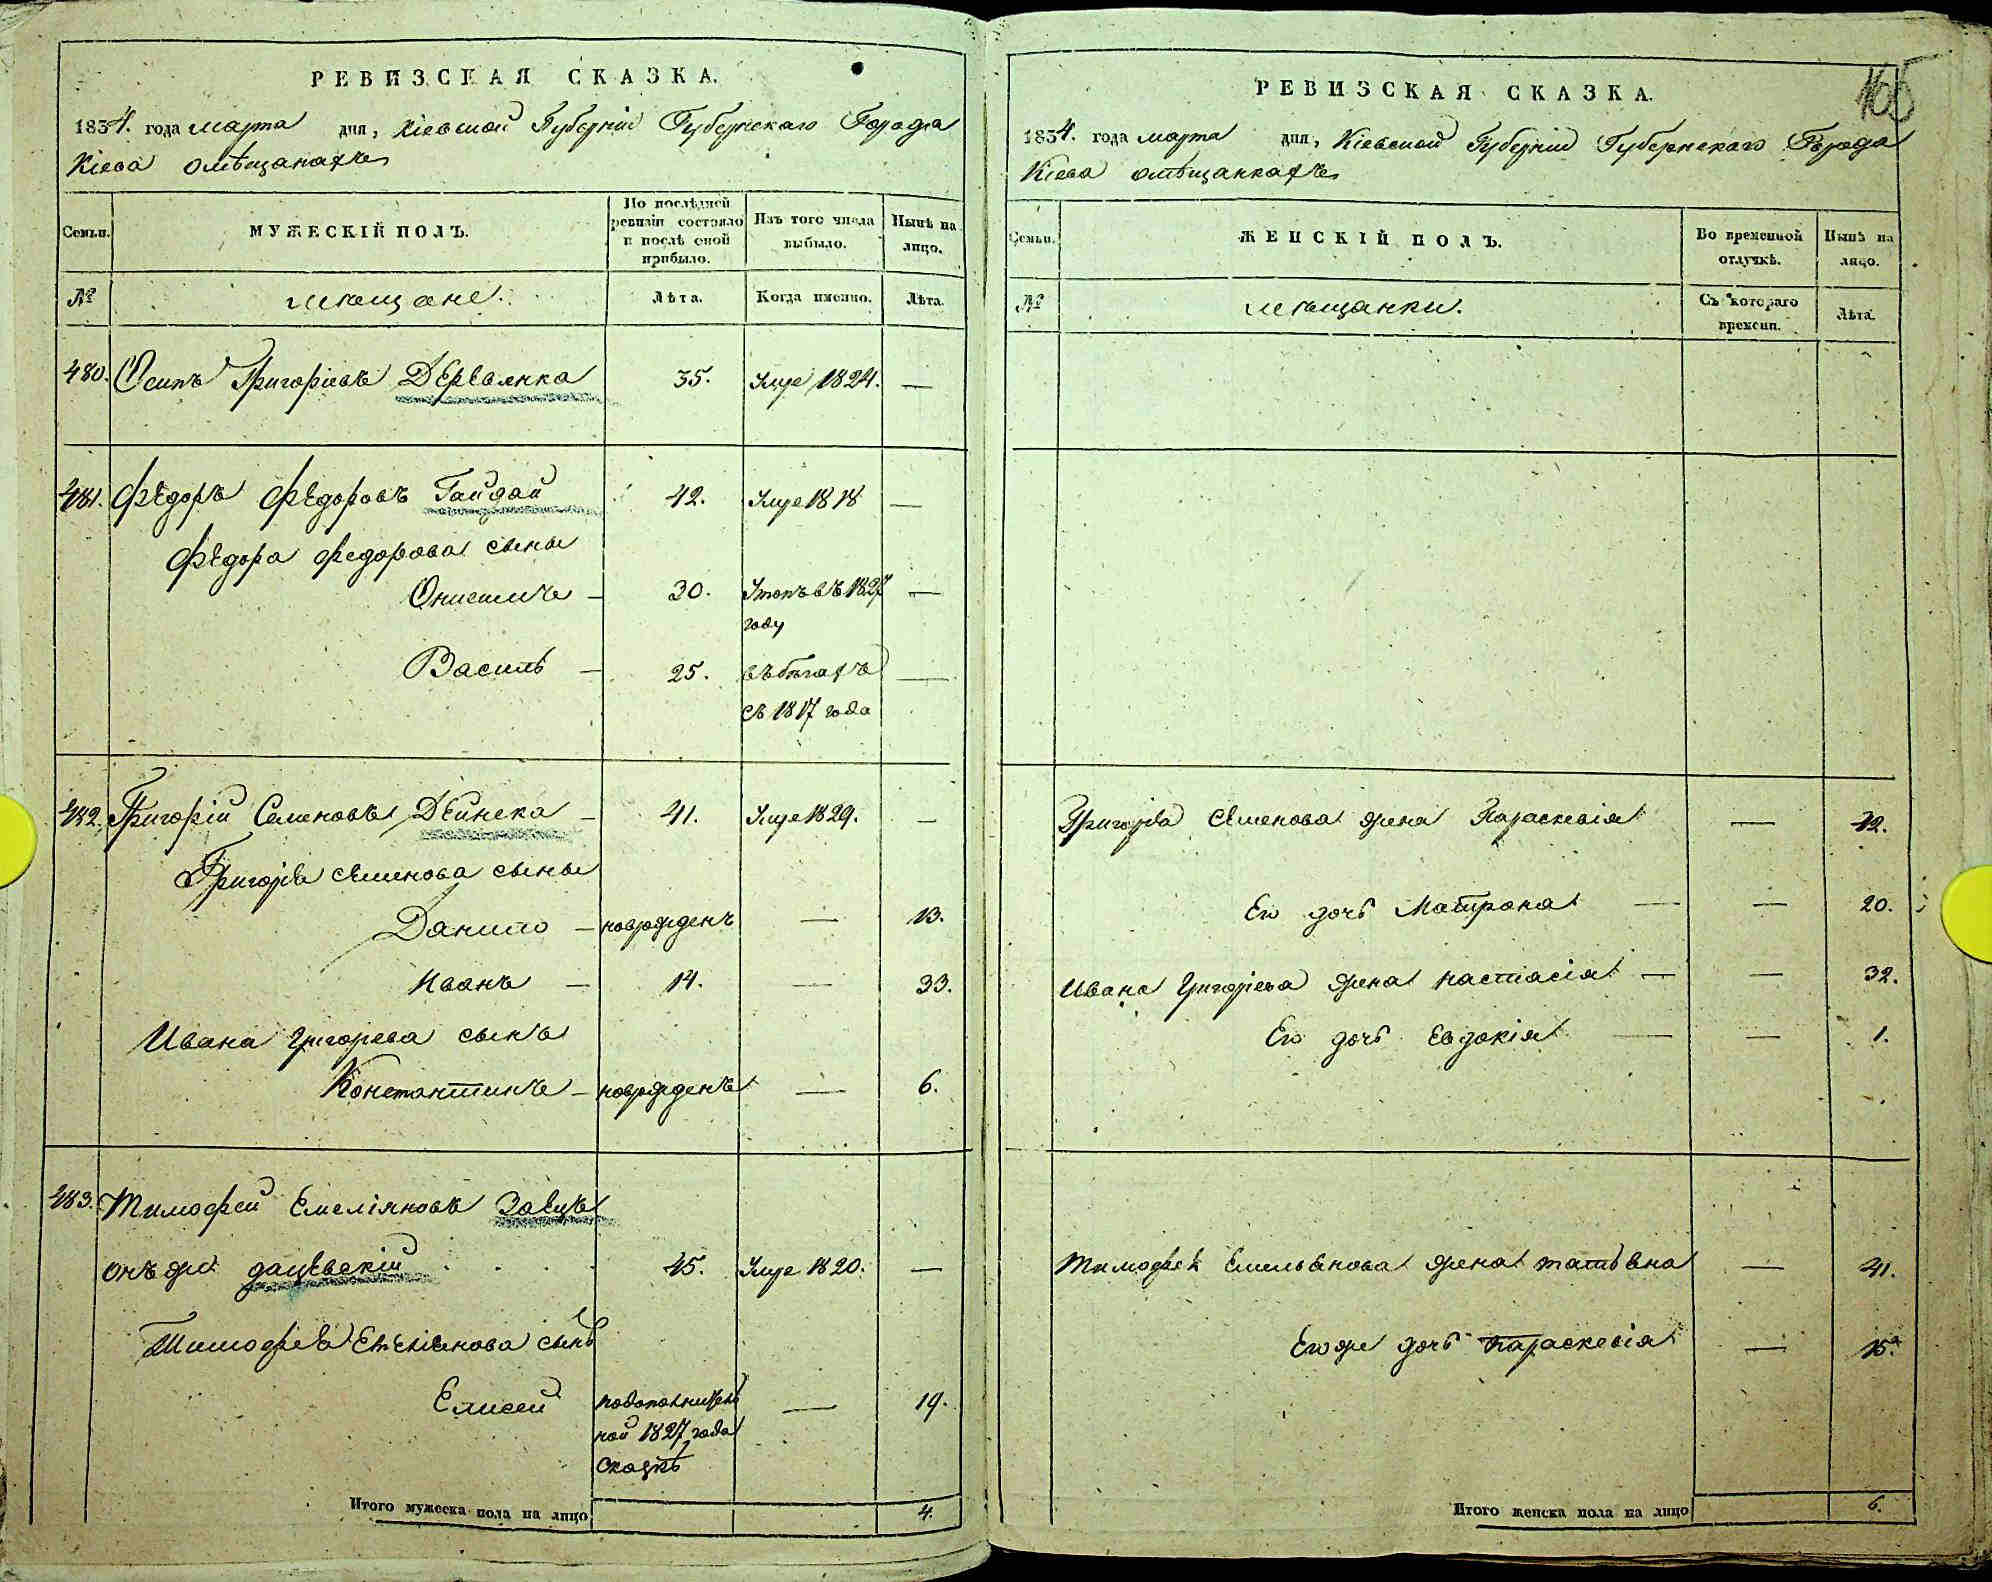 РЕВИЗСКАЯ СКАЗКА.
1834. года марта дня, Кіевской Губерніи Губернскаго Города
Кіева омѣщанахъ
Семьи.
МУЖЕСКІЙ ПОЛЪ.
По послѣдней ревизіи состояло и послѣ оной прибыло.
Изъ того числа выбыло.
Нынѣ на лицо.
№
мѣщане.
Лѣта.
Когда именно.
Лѣта.
480. Осипъ Григорьевъ Деревянка 35. Умре 1824. —
481. Федоръ Федоровъ Гайдай 42. Умре 1818 —
Федора Федорова сыны
Онисимъ — 30. Утопъ въ 1827 —
году
Василь — 25. въбѣгахъ —
съ 1817 года
482. Григорій Семеновъ Дейнека — 41. Умре 1829. —
Григорія Семенова сыны
Данило — новорожденъ — 13.
Иванъ — 14. — 33.
Ивана Григорева сынъ
Константинъ — новорожденъ — 6.
483. Тимофей Емеліяновъ Заецъ
онъ же дацевскій 45. Умре 1820. —
Тимофея Емеліянова сынъ
Елисей подополнитель — 19.
ной 1827 года
сказкѣ
Итого мужеска пола на лицо 4.
165
РЕВИЗСКАЯ СКАЗКА.
1834. года марта дня, Кіевской Губерніи Губернскаго Города
Кіева омѣщанкахъ
Семьи.
ЖЕНСКІЙ ПОЛЪ.
Во временной отлучкѣ.
Нынѣ на лицо.
№
мѣщанки.
Съ котораго времени.
Лѣта.
Григорія Семенова жена Параскевія —
Его дочь Матрона — — 20.
Ивана Григорьева жена настасія — — 32.
Его дочь Евдокія — — 1.
Тимофея Емельянова жена татьяна — 41.
Его же дочь Параскевія — 15.
Итого женска пола на лицо 6.